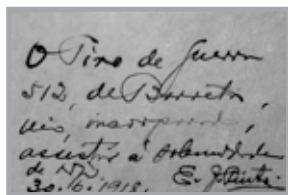 O Tiro de Guerra
512, de Barretos,
veio, incorporado,
assistir á solemnidade
de
30.6.1918.